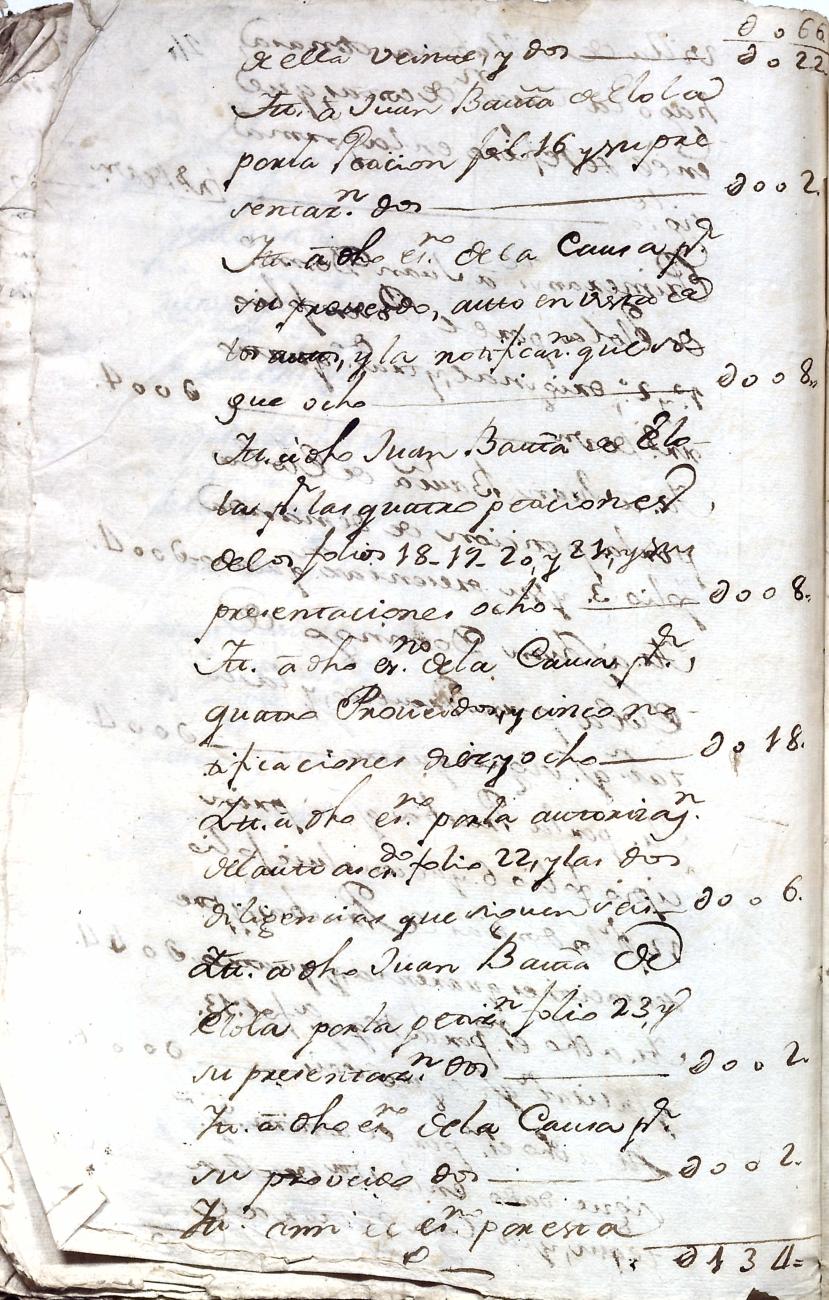 d o 66
della veinte, y dos d o 22
Itt. a Juan Bautta de Elola
por la Peticion fol. 16 y su pre
sentaz.n dos d o o 2.
Itt. a dho es.no de la Causa p.r
su proveido, auto en vista de
los autos, y la notificaz.n que se si
gue ocho d o o 8.
Itt. a dho Juan Bautta de Elo-
la p.r las quatro peticiones
de los folios 18-19-20, y 21, y sus
presentaciones ocho d o o 8.
Itt. a dho es.no de la Causa p.r
quatro Proveidos, y cinco no-
tificaciones diez, y ocho d o 18.
Itt. a dho es.no por la autorizaz.n
del auto folio 22, y las dos
diligencias que siguen seis d o o 6.
Itt. a dho Juan Bautta de
Elola por la petiz.n folio 23, y
su presentaz.n dos d o o 2.
Itt. a dho es.no de la Causa p.r
su proveido dos d o o 2.
Itt. a mi el es.no por esta
d 134=